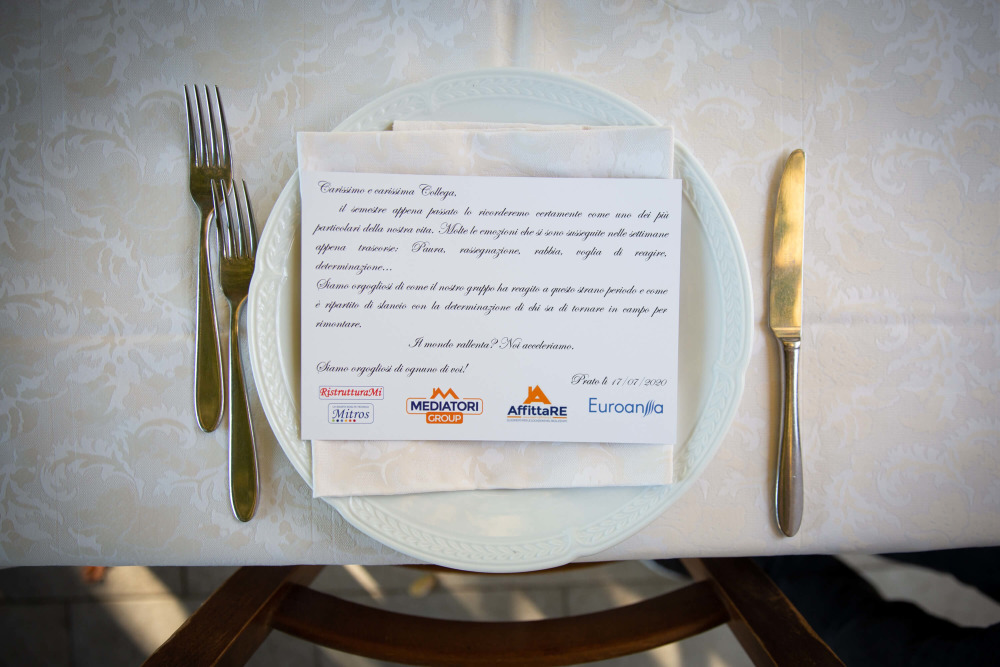 Carissimo e carissima Collega,
il semestre appena passato lo ricorderemo certamente come uno dei più
particolari della nostra vita. Molte le emozioni che si sono susseguite nelle settimane
appena trascorse: Paura, rassegnazione, rabbia, voglia di reagire,
determinazione...
Siamo orgogliosi di come il nostro gruppo ha reagito a questo strano periodo e come
è ripartito di slancio con la determinazione di chi sa di tornare in campo per
rimontare.
Il mondo rallenta? Noi acceleriamo.
Siamo orgogliosi di ognuno di voi!
Prato li 17/07/2020
RistrutturaMi
Mitros
MEDIATORI
GROUP
AffittaRE
Euroansa